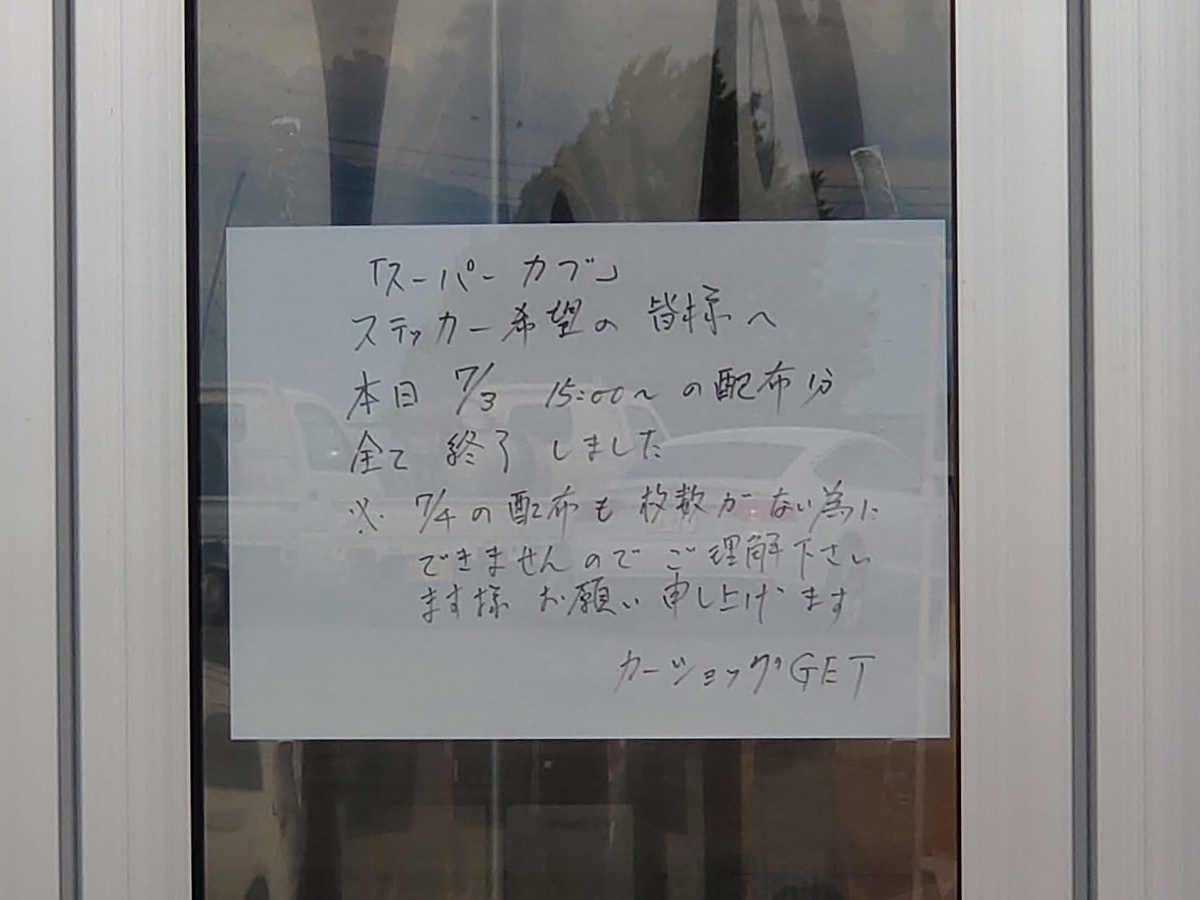 「スーパーカブ」
ステッカー希望の 皆様へ
本日 7/3 15:00〜の配布分
全て 終了 しました
※ 7/4の配布も 枚数がない為に
できませんので ご理解下さい
ます様 お願い 申し上げます
カーショップGET